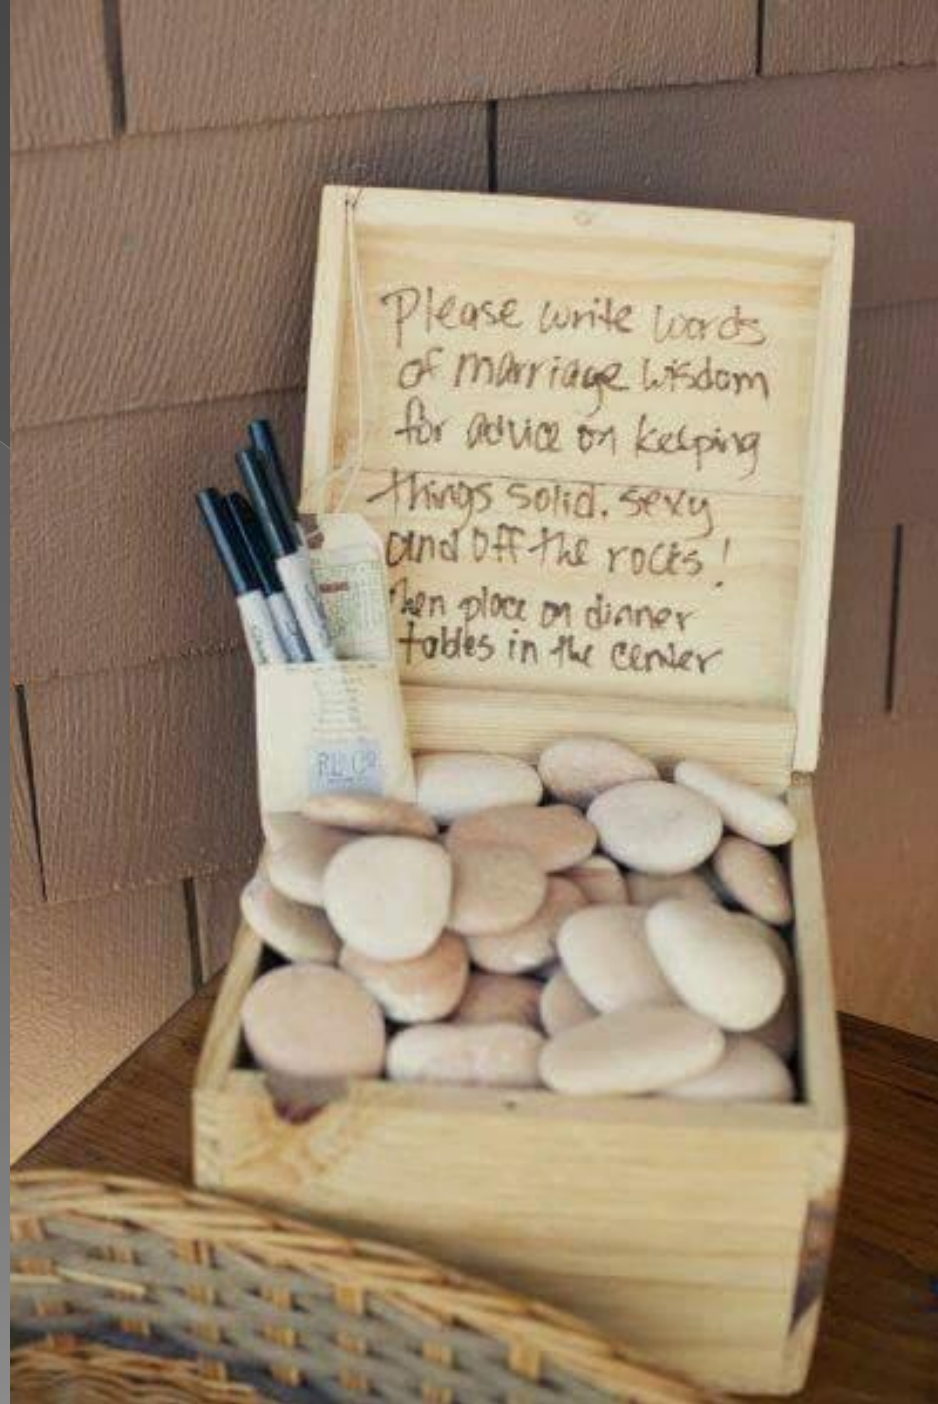 Please write words
of marriage wisdom
for advice on keeping
things solid. sexy
and off the rocks!
Then place on dinner
tables in the center